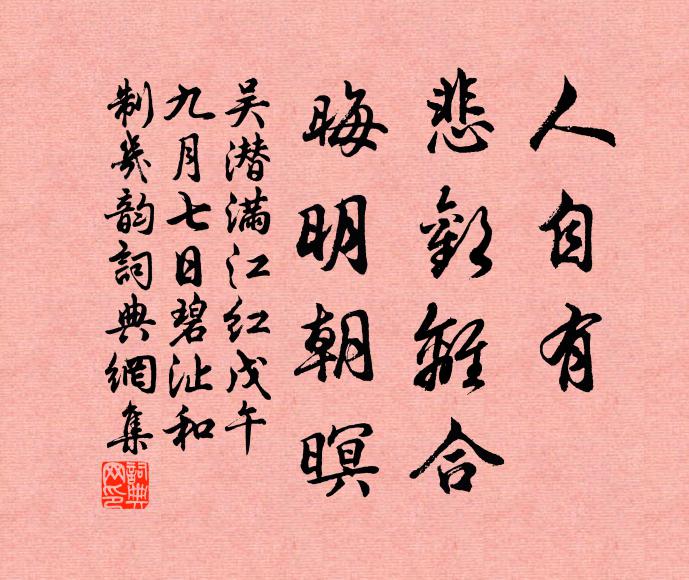 人自有
悲歡離合
晦明朝暝
吴潜满江红戊午
九月七日碧沚和
制幾韵詞典網集
詞典网印